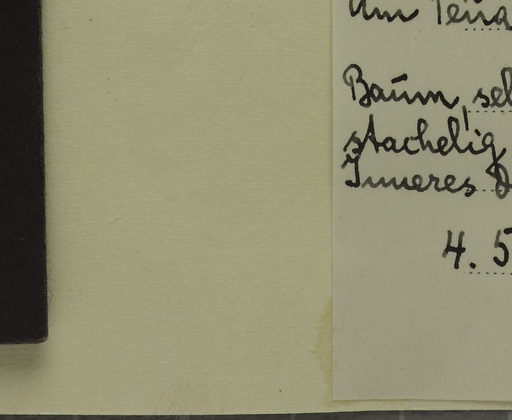 Am Teiia
Baum, sel
stachelig
Inneres D
4. 5